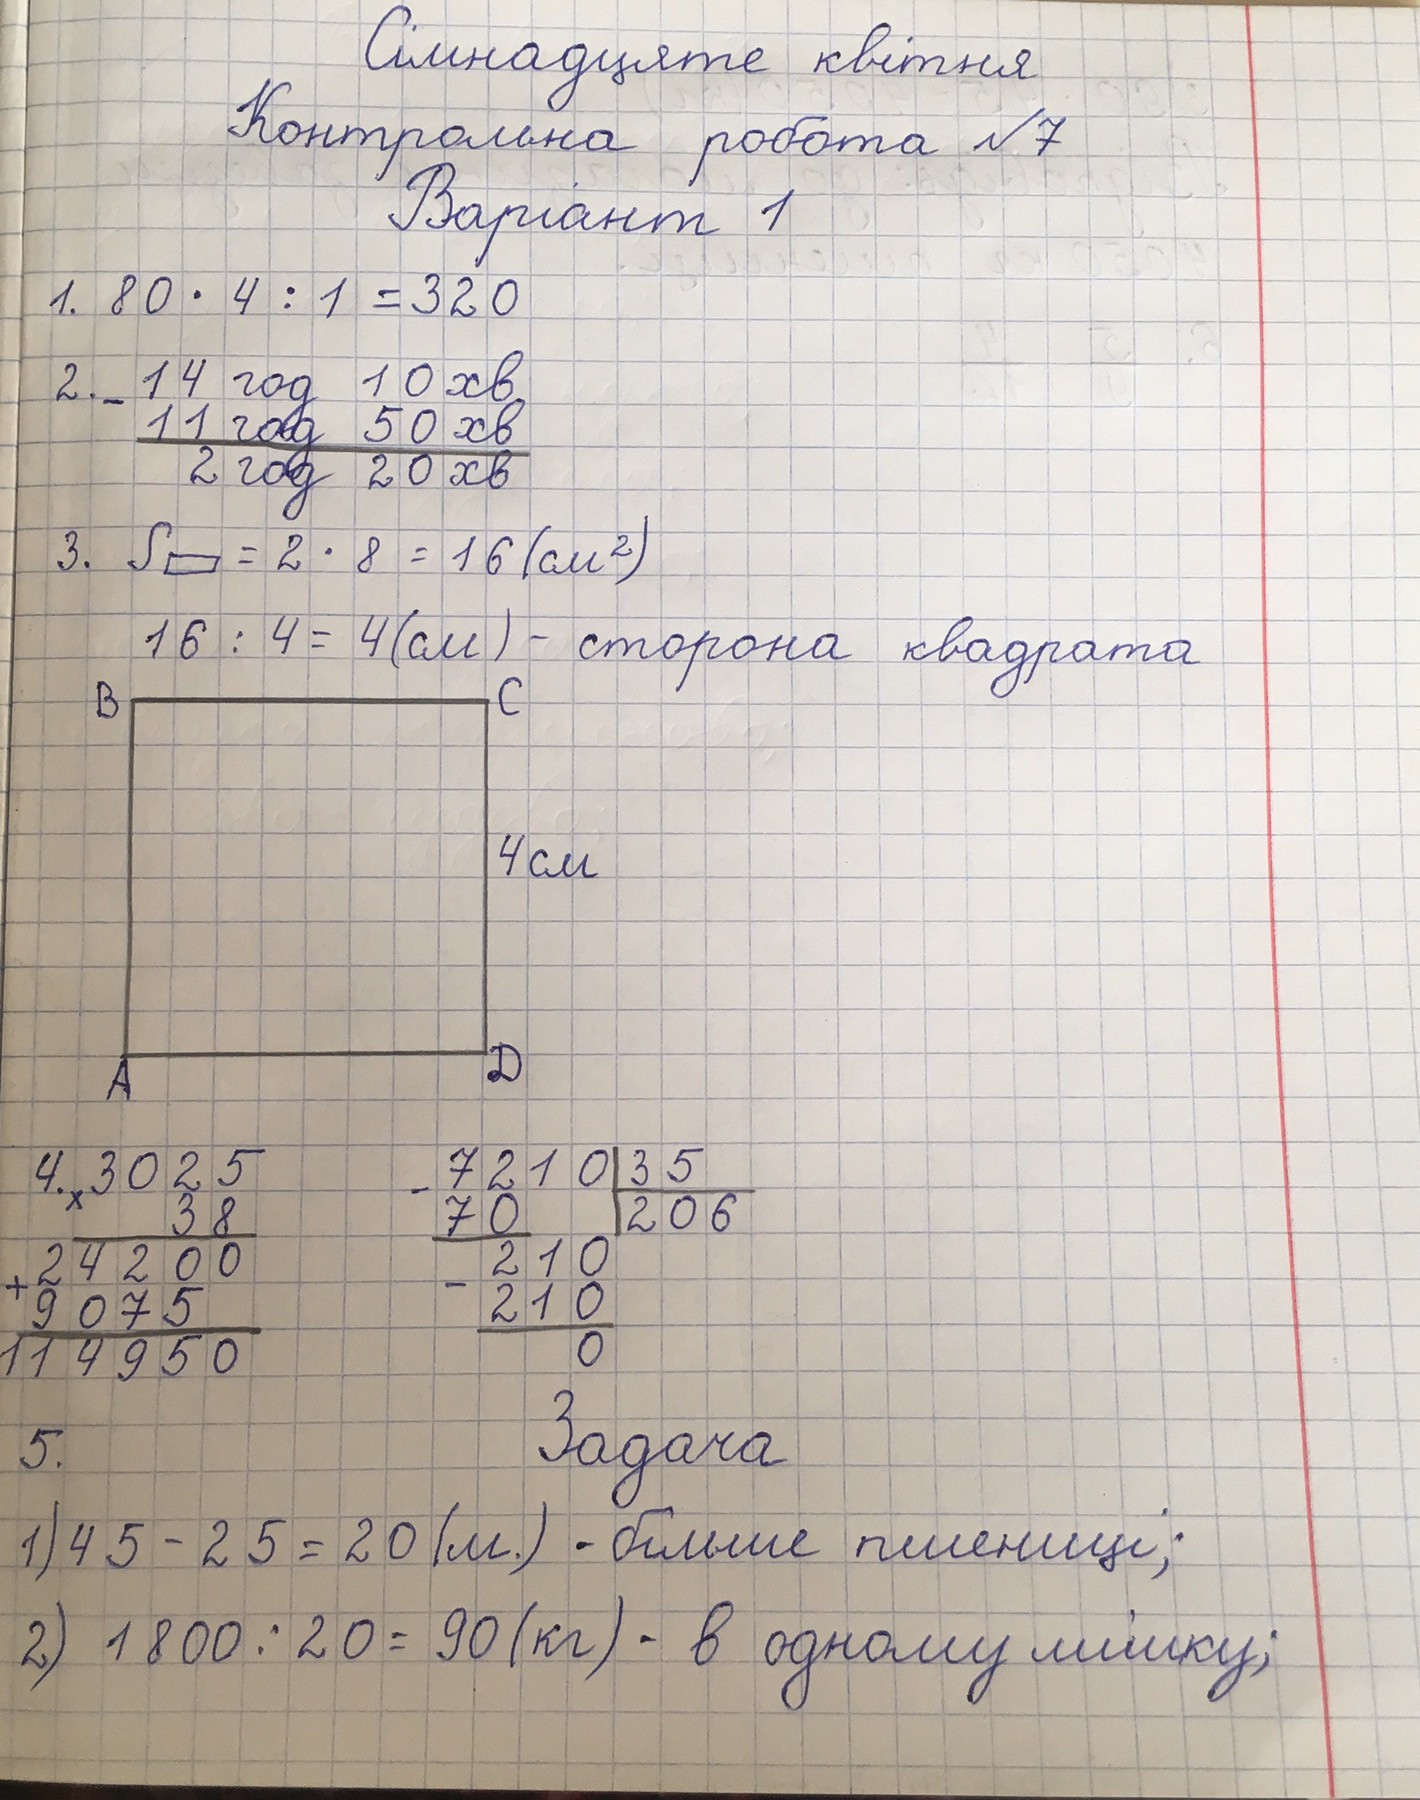 Сімнадцяте квітня
Контрольна робота №7
Варіант 1
1. 80 · 4 : 1 = 320
2. - 14 год 10 хв
11 год 50 хв
2 год 20 хв
3. S▭ = 2 · 8 = 16 (см²)
16 : 4 = 4 (см) - сторона квадрата
B C
4 см
A D
4. × 3025
38
+ 24200
9075
114950
- 7210 | 35
70 | 206
- 210
210
0
5. Задача
1) 45 - 25 = 20 (м.) - більше пшениці;
2) 1800 : 20 = 90 (кг) - в одному мішку;